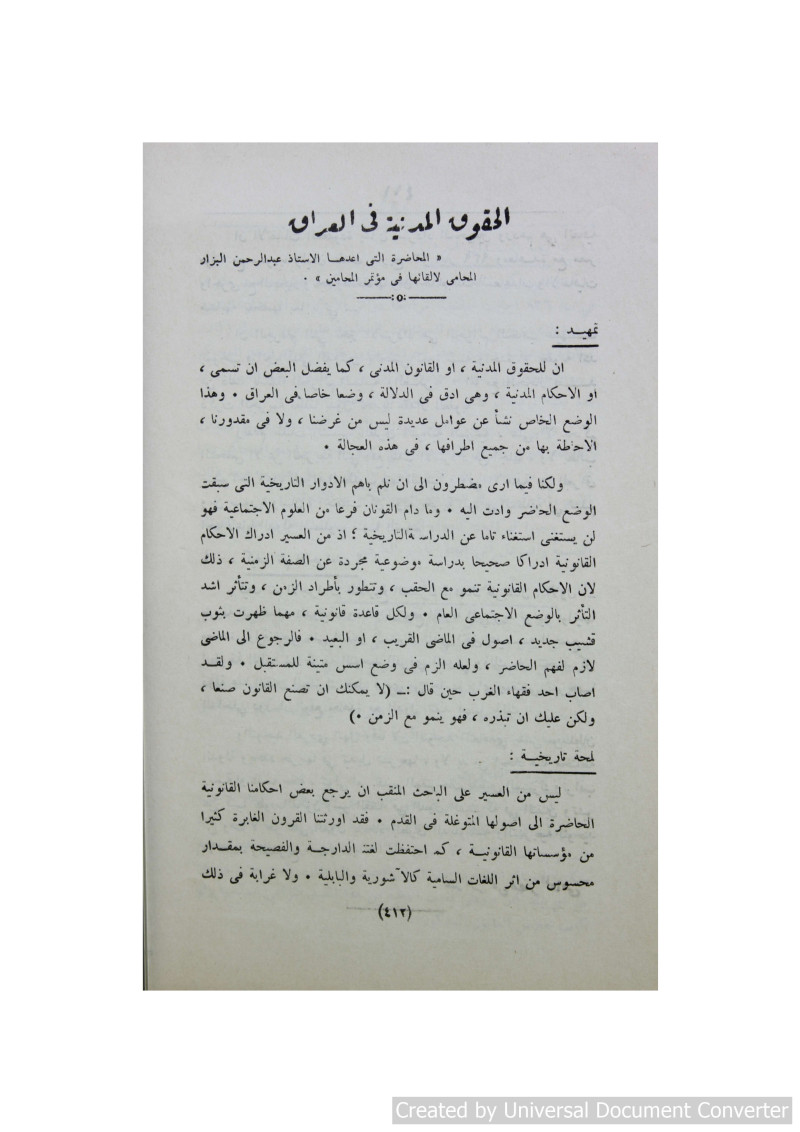 الحقوق المدنية فى العراق
« المحاضرة التى اعدهـا الاستاذ عبدالرحمن البزار
المحامى لالقائها فى مؤتمر المحامين » ٠
تمهيـد :
ان للحقوق المدنية ، او القانون المدنى ، كما يفضل البعض ان تسمى ،
او الاحكام المدنية ، وهى ادق فى الدلالة ، وضعا خاصا فى العراق ٠ وهذا
الوضع الخاص نشأ عن عوامل عديدة ليس من غرضنا ، ولا فى مقدورنا ،
الاحاطة بها من جميع اطرافها ، فى هذه العجالة ٠
ولكنا فيما ارى مضطرون الى ان نلم باهم الادوار التاريخية التى سبقت
الوضع الحاضر وادت اليه ٠ وما دام القونان فرعا من العلوم الاجتماعية فهو
لن يستغنى استغناء تاما عن الدراسة التاريخية ؛ اذ من العسير ادراك الاحكام
القانونية ادراكا صحيحا بدراسة موضوعية مجردة عن الصفة الزمنية ، ذلك
لان الاحكام القانونية تنمو مع الحقب ، وتتطور بأطراد الزمن ، وتتأثر اشد
التأثر بالوضع الاجتماعى العام ٠ ولكل قاعدة قانونية ، مهما ظهرت بثوب
قشيب جديد ، اصول فى الماضى القريب ، او البعيد ٠ فالرجوع الى الماضى
لازم لفهم الحاضر ، ولعله الزم فى وضع اسس متينة للمستقبل ٠ ولقـد
اصاب احد فقهاء الغرب حين قال :ـ (لا يمكنك ان تصنع القانون صنعا ،
ولكن عليك ان تبذره ، فهو ينمو مع الزمن ٠)
لمحة تاريخيـة :
ليس من العسير على الباحث المنقب ان يرجع بعض احكامنا القانونية
الحاضرة الى اصولها المتوغلة فى القدم ٠ فقد اورثتنا القرون الغابرة كثيرا
من مؤسساتها القانونيـة ، كما احتفظت لغتنا الدارجـة والفصيحة بمقـدار
محسوس من اثر اللغات السامية كالآشورية والبابلية ٠ ولا غرابة فى ذلك
(٤١٢)
Created by Universal Document Converter